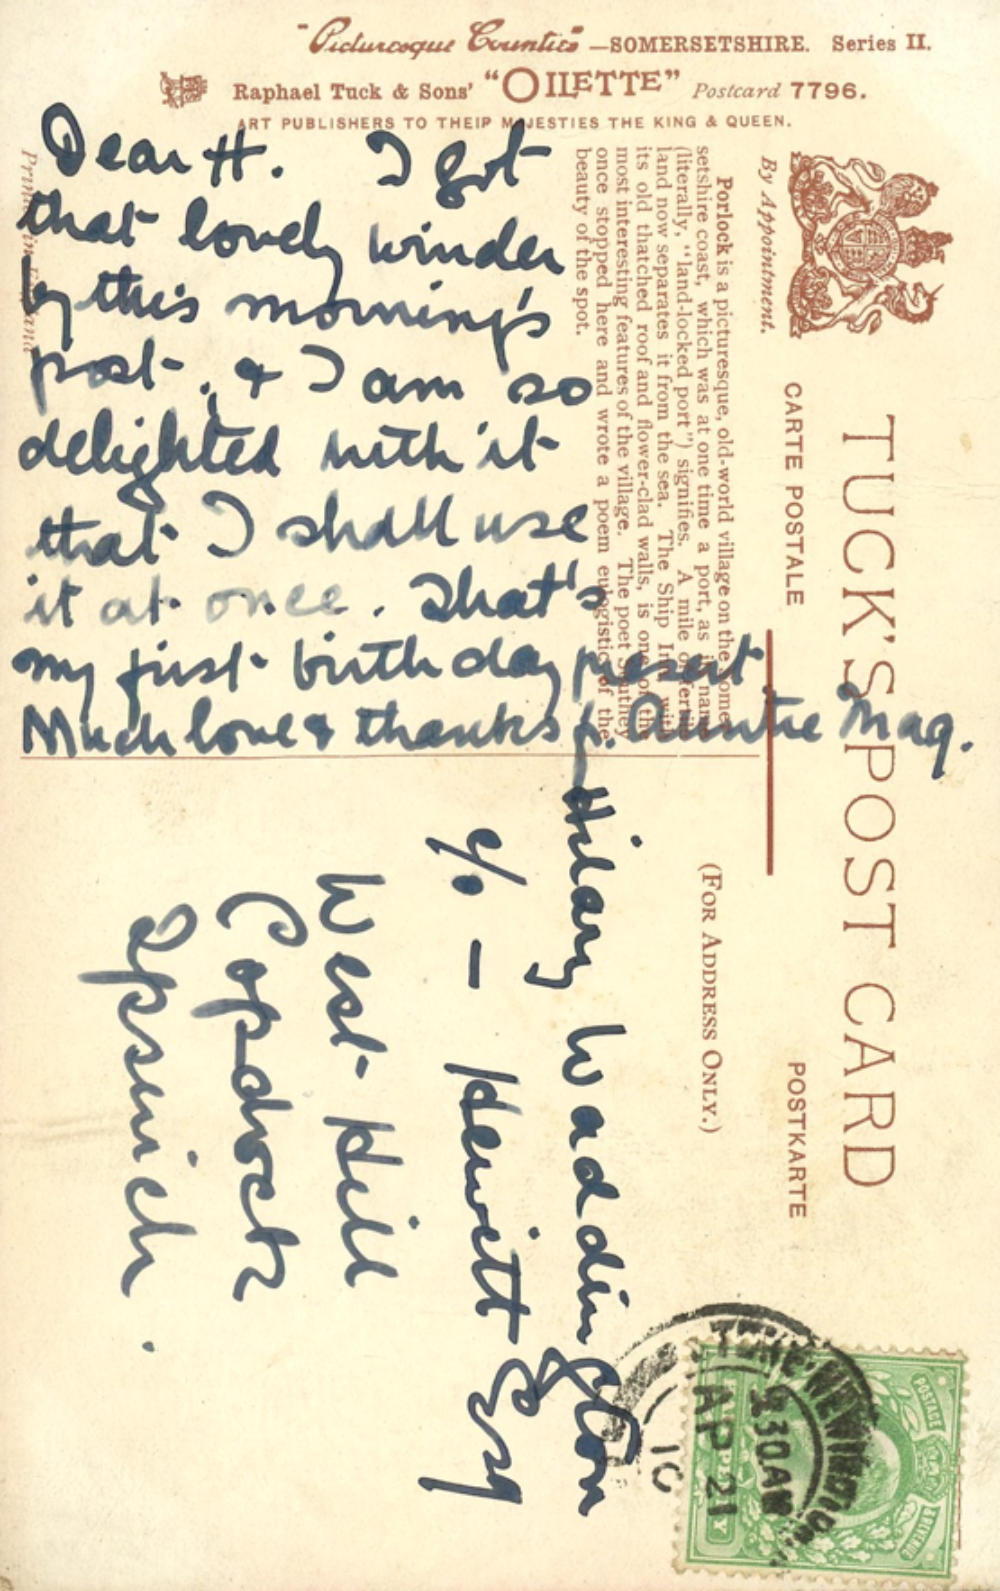 "Picturesque Counties" —SOMERSETSHIRE. Series II.
Raphael Tuck & Sons' "OILETTE" Postcard 7796.
ART PUBLISHERS TO THEIR MAJESTIES THE KING & QUEEN.
Dear H. I got
that lovely winder
by this morning's
post, & I am so
delighted with it
that I shall use
it at once. That's
my first birthday present.
Much love & thanks fr. Auntie Mag.
TUCK'S POST CARD
CARTE POSTALE POSTKARTE
By Appointment.
(FOR ADDRESS ONLY.)
Porlock is a picturesque, old-world village on the Somer-
setshire coast, which was at one time a port, as its name
(literally, "land-locked port") signifies. A mile of fertile
land now separates it from the sea. The Ship Inn, with
its old thatched roof and flower-clad walls, is one of the
most interesting features of the village. The poet Southey
once stopped here and wrote a poem eulogistic of the
beauty of the spot.
Hilary Waddington
c/o — Hewitt Esq
West Hill
Copdock
Ipswich.
Printed in England
STOKE-NEWINGTON
30AM
AP 21
10
POSTAGE
& REVENUE